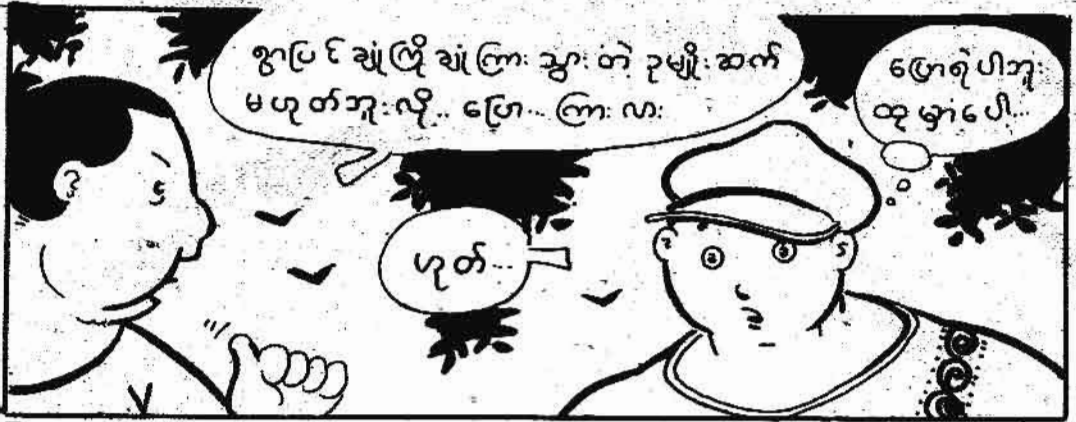 ရွာပြင် ချုံကြို ချုံကြား သွား တဲ့ ဥမျိုး ဆက်
မဟုတ်ဘူး လို့... ပြော... ကြား လား
ဟုတ်...
ပြောရဲပါဘူး
ထု မှာပေါ့...